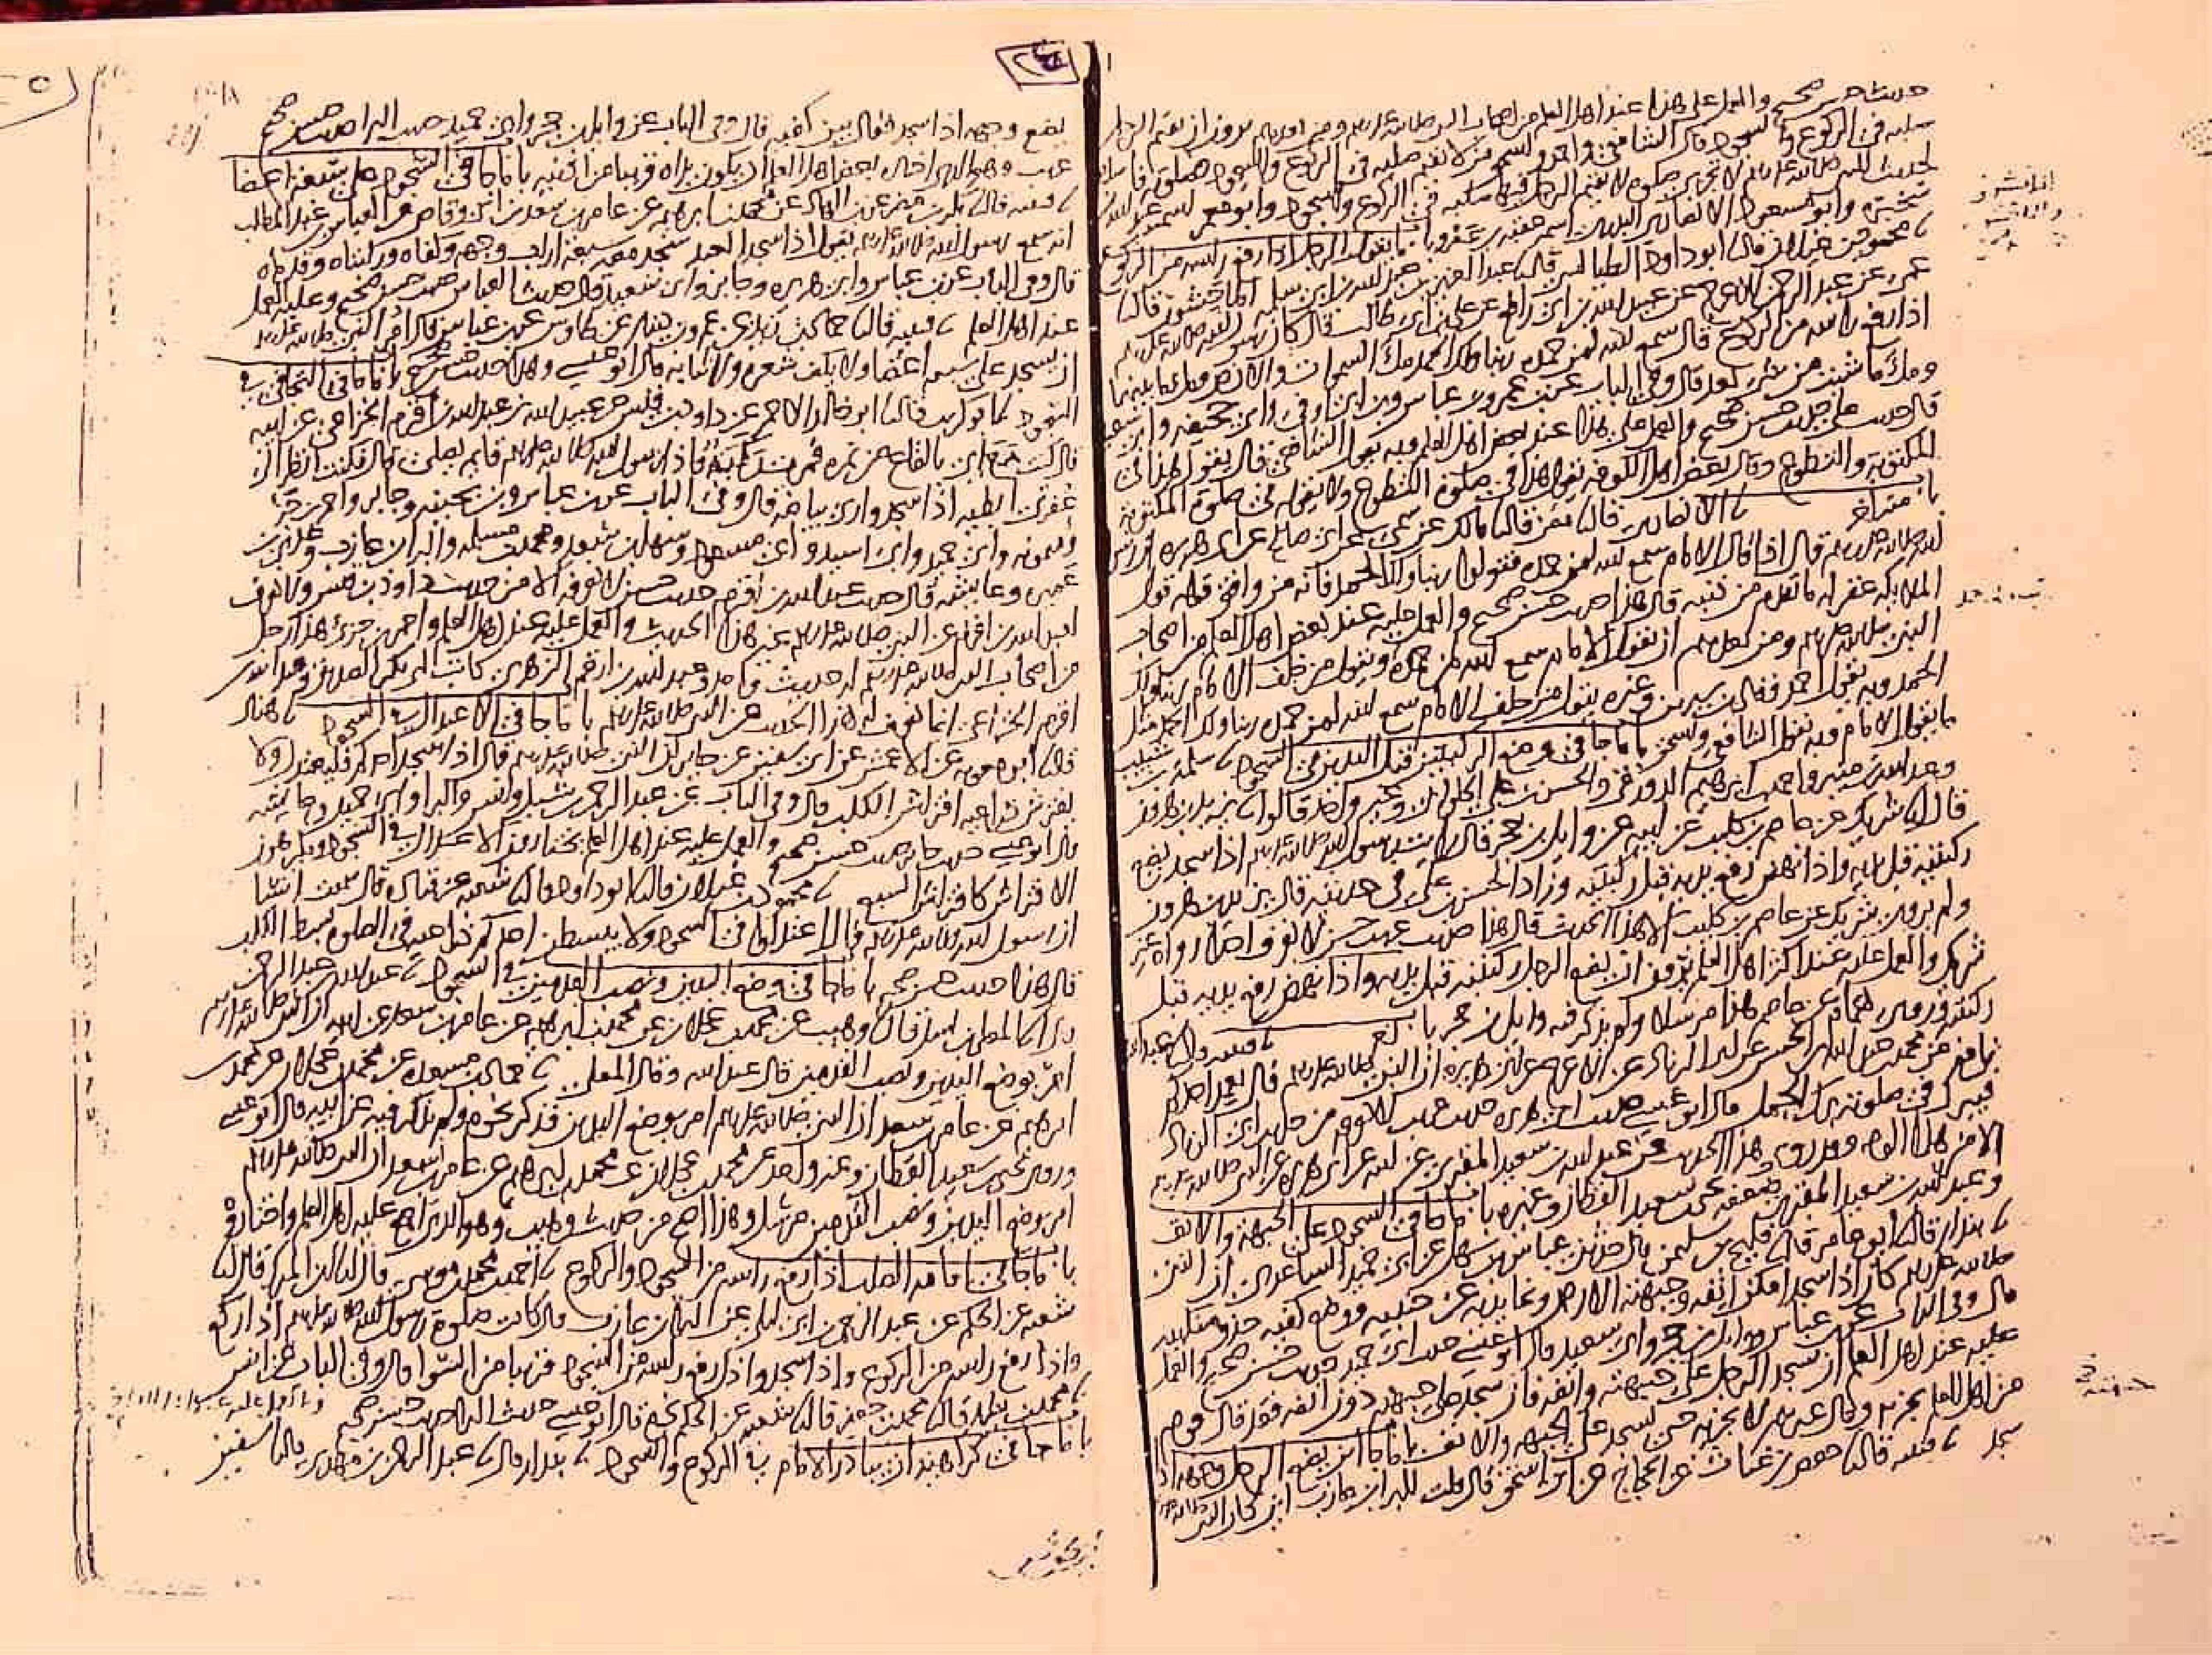 حديث حسن صحيح والعمل على هذا عند اهل العلم من اصحاب النبي صلى الله عليه وسلم ومن بعدهم يرون ان يقيم الرجل
صلبه في الركوع والسجود قال الشافعي واحمد واسحق من لا يقيم صلبه في الركوع والسجود فصلوته فاسدة
لحديث النبي صلى الله عليه وسلم لا تجزئ صلوة لا يقيم الرجل فيها صلبه في الركوع والسجود وابو معمر اسمه عبد الله بن
سخبرة وابو مسعود الانصاري البدري اسمه عقبة بن عمرو باب ما يقول الرجل اذا رفع راسه من الركوع
محمود بن غيلان قال نا ابو داود الطيالسي قال نا عبد العزيز بن عبد الله بن ابي سلمة الماجشون قال نا
عمي عن عبد الرحمن الاعرج عن عبيد الله بن ابي رافع عن علي بن ابي طالب قال كان رسول الله صلى الله عليه وسلم
اذا رفع راسه من الركوع قال سمع الله لمن حمده ربنا ولك الحمد ملء السموات والارض وملء ما بينهما
وملء ما شئت من شيء بعد قال وفي الباب عن بن عمر وبن عباس وبن ابي اوفى وابي جحيفة وابي سعيد
قال حديث علي حديث حسن صحيح والعمل على هذا عند بعض اهل العلم وبه يقول الشافعي قال يقول هذا في
المكتوبة والتطوع وقال بعض اهل الكوفة يقول هذا في صلوة التطوع ولا يقوله في صلوة المكتوبة
باب منه اخر الانصاري قال نا معن قال نا مالك عن سمي عن ابي صالح عن ابي هريرة ان رسول
الله صلى الله عليه وسلم قال اذا قال الامام سمع الله لمن حمده فقولوا ربنا ولك الحمد فانه من وافق قوله قول
الملائكة غفر له ما تقدم من ذنبه قال هذا حديث حسن صحيح والعمل عليه عند بعض اهل العلم من اصحاب
النبي صلى الله عليه وسلم ومن بعدهم ان يقول الامام سمع الله لمن حمده ويقول من خلف الامام ربنا ولك
الحمد وبه يقول احمد وقال بن سيرين وغيره يقول من خلف الامام سمع الله لمن حمده ربنا ولك الحمد مثل
ما يقول الامام وبه يقول الشافعي واسحق باب ما جا في وضع الركبتين قبل اليدين في السجود سلمة بن شبيب
وعبد الله بن منير واحمد بن ابرهيم الدورقي والحسن بن علي الحلواني وغير واحد قالوا نا يزيد بن هرون
قال نا شريك عن عاصم بن كليب عن ابيه عن وايل بن حجر قال رايت رسول الله صلى الله عليه وسلم اذا سجد يضع
ركبتيه قبل يديه واذا نهض رفع يديه قبل ركبتيه وزاد الحسن بن علي في حديثه قال يزيد بن هرون
ولم يرو بن شريك عن عاصم بن كليب الا هذا الحديث قال هذا حديث غريب حسن لا نعرف احدا رواه غير
شريك والعمل عليه عند اكثر اهل العلم يرون ان يضع الرجل ركبتيه قبل يديه واذا نهض رفع يديه قبل
ركبتيه وروى همام عن عاصم هذا مرسلا ولم يذكر فيه وايل بن حجر باب قتيبة قال نا عبد الله
بن نافع عن محمد بن عبد الله بن الحسن عن ابي الزناد عن الاعرج عن ابي هريرة ان النبي صلى الله عليه وسلم قال يعمد احدكم
فيبرك في صلوته برك الجمل قال ابو عيسى حديث ابي هريرة حديث غريب لا نعرفه من حديث ابي الزناد
الا من هذا الوجه وقد روي هذا الحديث عن عبد الله بن سعيد المقبري عن ابيه عن ابي هريرة عن النبي صلى الله عليه وسلم
وعبد الله بن سعيد المقبري ضعفه يحيى بن سعيد القطان وغيره باب ما جا في السجود على الجبهة والانف
بندار قال نا ابو عامر قال نا فليح بن سليمن قال حدثني عباس بن سهل عن ابي حميد الساعدي ان النبي
صلى الله عليه وسلم كان اذا سجد امكن انفه وجبهته الارض ونحا يديه عن جنبيه ووضع كفيه حذو منكبيه
قال وفي الباب عن بن عباس ووايل بن حجر وابي سعيد قال ابو عيسى حديث ابي حميد حديث حسن صحيح والعمل
عليه عند اهل العلم ان يسجد الرجل على جبهته وانفه فان سجد على جبهته دون انفه فقد قال قوم
من اهل العلم يجزيه وقال غيرهم لا يجزيه حتى يسجد على الجبهة والانف باب ما جا اين يضع الرجل وجهه اذا
سجد قتيبة قال نا حفص بن غياث عن الحجاج عن ابي اسحق قال قلت للبرا بن عازب اين كان النبي صلى الله عليه وسلم
يضع وجهه اذا سجد فقال بين كفيه قال وفي الباب عن وايل بن حجر وابي حميد حديث البرا حديث حسن صحيح
غريب وهو الذي اختاره بعض اهل العلم ان يكون يداه قريبا من اذنيه باب ما جا في السجود على سبعة اعضا
قتيبة قال نا بكر بن مضر عن بن الهاد عن محمد بن ابرهيم عن عامر بن سعد بن ابي وقاص عن العباس بن عبد المطلب
انه سمع رسول الله صلى الله عليه وسلم يقول اذا سجد العبد سجد معه سبعة اراب وجهه وكفاه وركبتاه وقدماه
قال وفي الباب عن بن عباس وابي هريرة وجابر وابي سعيد قال حديث العباس حديث حسن صحيح وعليه العمل
عند اهل العلم قتيبة قال نا حماد بن زيد عن عمرو بن دينار عن طاوس عن بن عباس قال امر النبي صلى الله عليه وسلم
ان يسجد على سبعة اعضا ولا يكف شعره ولا ثيابه قال ابو عيسى وهذا حديث حسن صحيح باب ما جا في التجافي في
السجود ابو كريب قال نا ابو خالد الاحمر عن داود بن قيس عن عبيد الله بن عبد الله بن اقرم الخزاعي عن ابيه
قال كنت مع ابي بالقاع من نمرة فمرت ركبة فاذا رسول الله صلى الله عليه وسلم قايم يصلي قال فكنت انظر الى
عفرتي ابطيه اذا سجد وارى بياضه قال وفي الباب عن بن عباس وبن بحينة وجابر واحمر بن جزء
وميمونة وابي حميد وابي اسيد وابي مسعود وسهل بن سعد ومحمد بن مسلمة والبرا بن عازب وعدي بن
عميرة وعايشة قال حديث عبد الله بن اقرم حديث حسن لا نعرفه الا من حديث داود بن قيس ولا نعرف
لعبد الله بن اقرم عن النبي صلى الله عليه وسلم غير هذا الحديث والعمل عليه عند اهل العلم واحمر بن جزء هذا رجل
من اصحاب النبي صلى الله عليه وسلم له حديث واحد وعبد الله بن ارقم الزهري كاتب ابي بكر الصديق وعبد الله بن
اقرم الخزاعي انما نعرف له هذا الحديث عن النبي صلى الله عليه وسلم باب ما جا في الاعتدال في السجود هناد
قال نا ابو معوية عن الاعمش عن ابي سفين عن جابر ان النبي صلى الله عليه وسلم قال اذا سجد احدكم فليعتدل ولا
يفترش ذراعيه افتراش الكلب قال وفي الباب عن عبد الرحمن بن شبل وانس والبرا وابي حميد وعايشة
قال ابو عيسى حديث جابر حديث حسن صحيح والعمل عليه عند اهل العلم يختارون الاعتدال في السجود ويكرهون
الافتراش كافتراش السبع محمود بن غيلان قال نا ابو داود قال نا شعبة عن قتادة قال سمعت انسا
ان رسول الله صلى الله عليه وسلم قال اعتدلوا في السجود ولا يبسطن احدكم ذراعيه في الصلوة بسط الكلب
قال هذا حديث حسن صحيح باب ما جا في وضع اليدين ونصب القدمين في السجود عبد الله بن عبد الرحمن
قال نا المعلى بن اسد قال نا وهيب عن محمد بن عجلان عن محمد بن ابرهيم عن عامر بن سعد عن ابيه ان النبي صلى الله عليه وسلم
امر بوضع اليدين ونصب القدمين قال عبد الله وقال المعلى نا حماد بن مسعدة عن محمد بن عجلان عن محمد بن
ابرهيم عن عامر بن سعد ان النبي صلى الله عليه وسلم امر بوضع اليدين فذكر نحوه ولم يذكر فيه عن ابيه قال ابو عيسى
وروى يحيى بن سعيد القطان وغير واحد عن محمد بن عجلان عن محمد بن ابرهيم عن عامر بن سعد ان النبي صلى الله عليه وسلم
امر بوضع اليدين ونصب القدمين مرسل وهذا اصح من حديث وهيب وهو الذي اجمع عليه اهل العلم واختاروه
باب ما جا في اقامة الصلب اذا رفع راسه من السجود والركوع احمد بن محمد بن موسى قال نا بن المبارك قال نا
شعبة عن الحكم عن عبد الرحمن بن ابي ليلى عن البرا بن عازب قال كانت صلوة رسول الله صلى الله عليه وسلم اذا ركع
واذا رفع راسه من الركوع واذا سجد واذا رفع راسه من السجود قريبا من السوا قال وفي الباب عن انس
محمد بن بشار قال نا محمد بن جعفر قال نا شعبة عن الحكم نحوه قال ابو عيسى حديث البرا حديث حسن صحيح
باب ما جا في كراهية ان يبادر الامام في الركوع والسجود بندار قال نا عبد الرحمن بن مهدي قال نا سفين